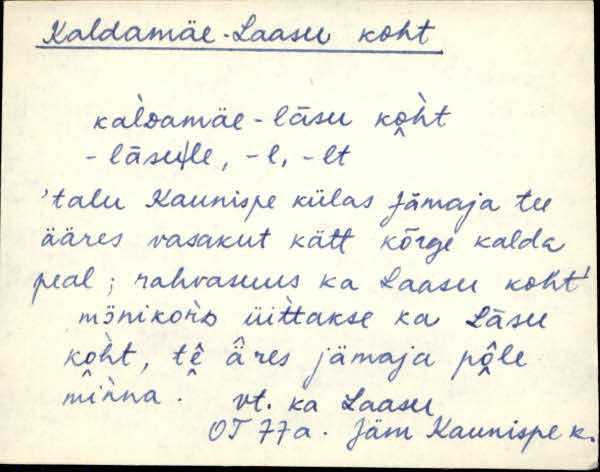 Kaldamäe-Laasu koht
kàldamäe-lāsu ko̭h̀t
-lāsu|le, -l, -lt
'talu Kaunispe külas Jämaja tee
ääres vasakut kätt kõrge kalda
peal; rahvasuus ka Laasu koht'
mȯnikorD üiìttakse ka Lāsu
ko̭h̀t, tḙ̂ âres jämaja pô̭le
mi̭ǹna. vt. ka Laasu
OT 77a. Jäm Kaunispe k.